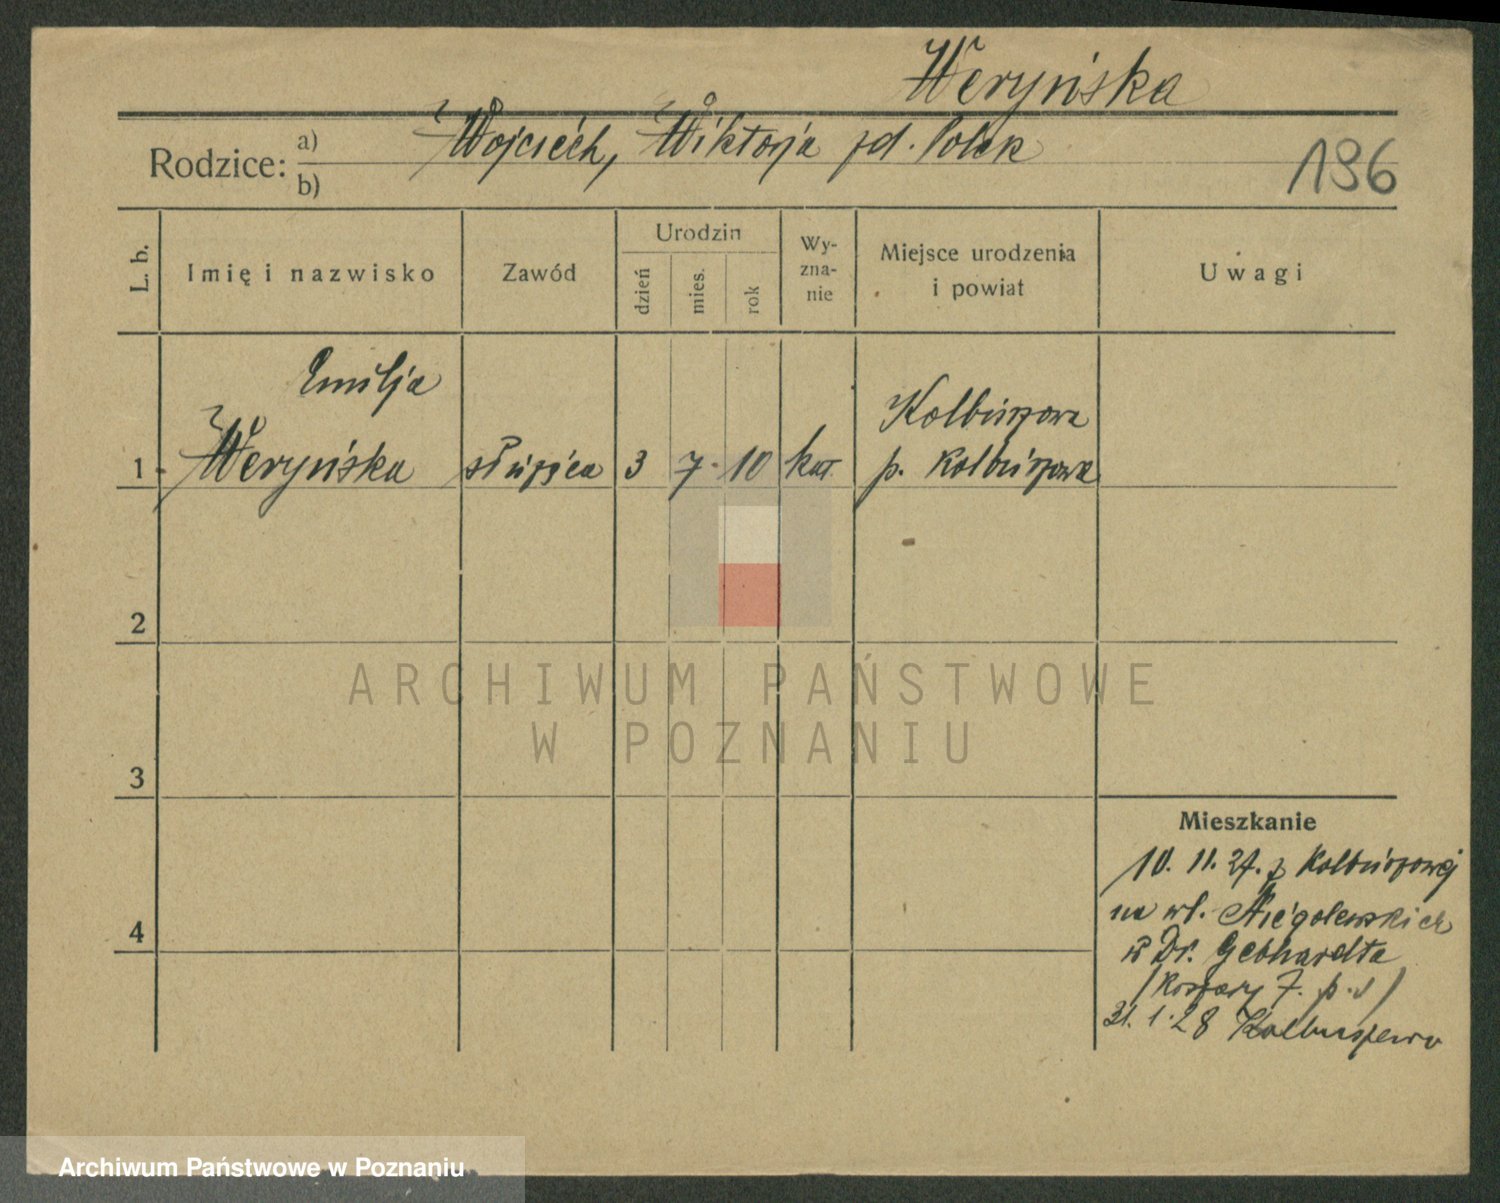 Weryńska
Rodzice: a) Wojciech, Wiktorja zd. Polak
b)
196
L. b.
Imię i nazwisko
Zawód
Urodzin
dzień
mies.
rok
Wy-
zna-
nie
Miejsce urodzenia
i powiat
Uwagi
Emilja
1 Weryńska służąca 3 7. 10 kat. Kolbuszowa
p. Kolbuszowa
2
ARCHIWUM PAŃSTWOWE
W POZNANIU
3
Mieszkanie
10. 11. 27. z Kolbuszowej
na ul. Niegolewskich
u Dr. Gebhardta
4
/Koszary 7. p. /
31. 1. 28 Kolbuszowa
Archiwum Państwowe w Poznaniu